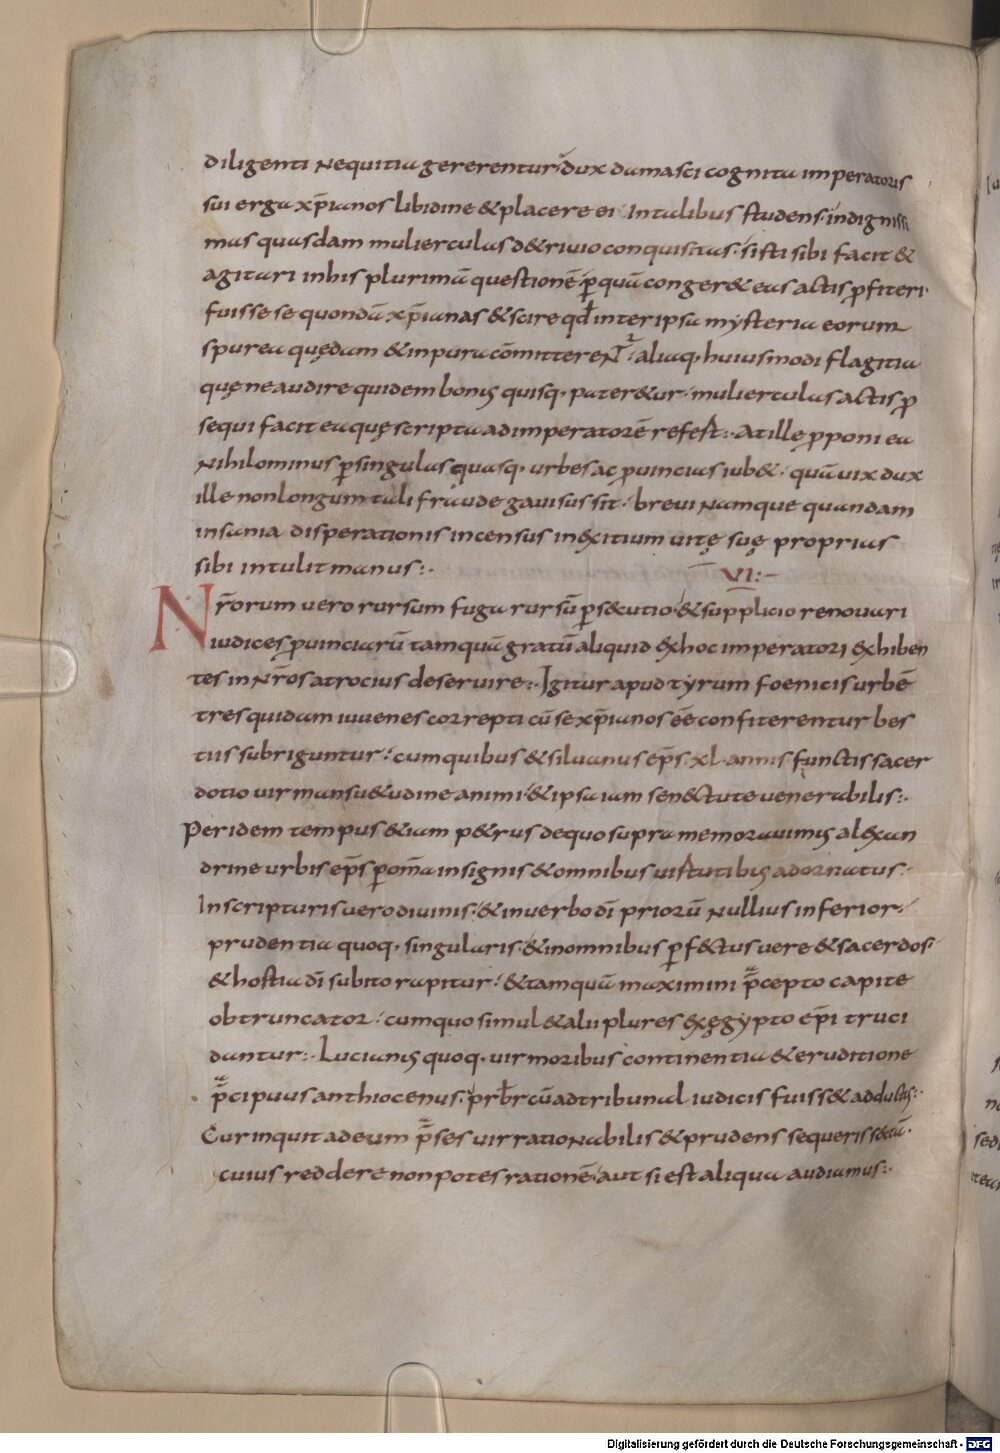 diligenti nequitia gererentur. dux damasci cognita imperatoris
sui erga xp̄ianos libidine & placere ei. In talibus studens. indignissi
mas quasdam mulierculas d& riuio conquisitas. sisti sibi facit &
agitari in his plurimā questionē. p̄ quā conger& eas actis ꝓfiteri
fuisse se quondā xp̄ianas & scire qđ inter ipsa mysteria eorum
spurea quędam & inpura cōmitterent̄. aliaq, huiusmodi flagitia
quę ne audire quidem bonis quisq, pater&ur. muliercula actis ꝓ
sequi facit ea quę scripta ad imperatorē refest:. At ille ꝓponi ea
nihilominus ꝑ singulas quasq, urbes ac ꝓuincias iub&. quā uix dux
ille non longum tali fraude gauisus sit. breui namque quandam
insania disperationis incensus in exitium uitę suę proprias
sibi intulit manus:.
VI:-
Nr̄orum uero rursum fuga rursū ꝑs&cutio. & supplicio renouari
iudices ꝓuinciarū tamquā gratū aliquid ex hoc imperatori exhiben
tes in nr̄os atrocius deseruire:. Igitur apud tyrum foenicis urbē
tres quidam iuuenes correpti cū se xp̄ianos eē confiterentur bes
tiis subriguntur. cum quibus & siluanus ep̄s. xl. annis functis sacer
dotio uir mansu&udine animi. & ipsa iam senectute uenerabilis:.
Per idem tempus &iam p&rus de quo supra memorauimus alexan
drine urbis ep̄s ꝑ om̄a insignis & omnibus uirtutibus adornatus.
In scripturis uero diuinis. & in uerbo dī priorū nullius inferior.
prudentia quoq, singularis. & in omnibus ꝑfectus uere & sacerdos.
& hostia dī subito rapitur. & tamquā maximini p̄cepto capite
obtruncator. cum quo simul & alii plures ex ęgypto ep̄i truci
dantur:. Lucianus quoq, uir moribus continentia & eruditione
p̄cipuus anthiocenus. prb̄r cū ad tribunal iudicis fuiss& adductus:.
Cur inquit ad eum p̄ses uir rationabilis & prudens sequeris sectā.
cuius reddere non potes rationē. aut si est aliqua audiamus:.
Digitalisierung gefördert durch die Deutsche Forschungsgemeinschaft - DFG